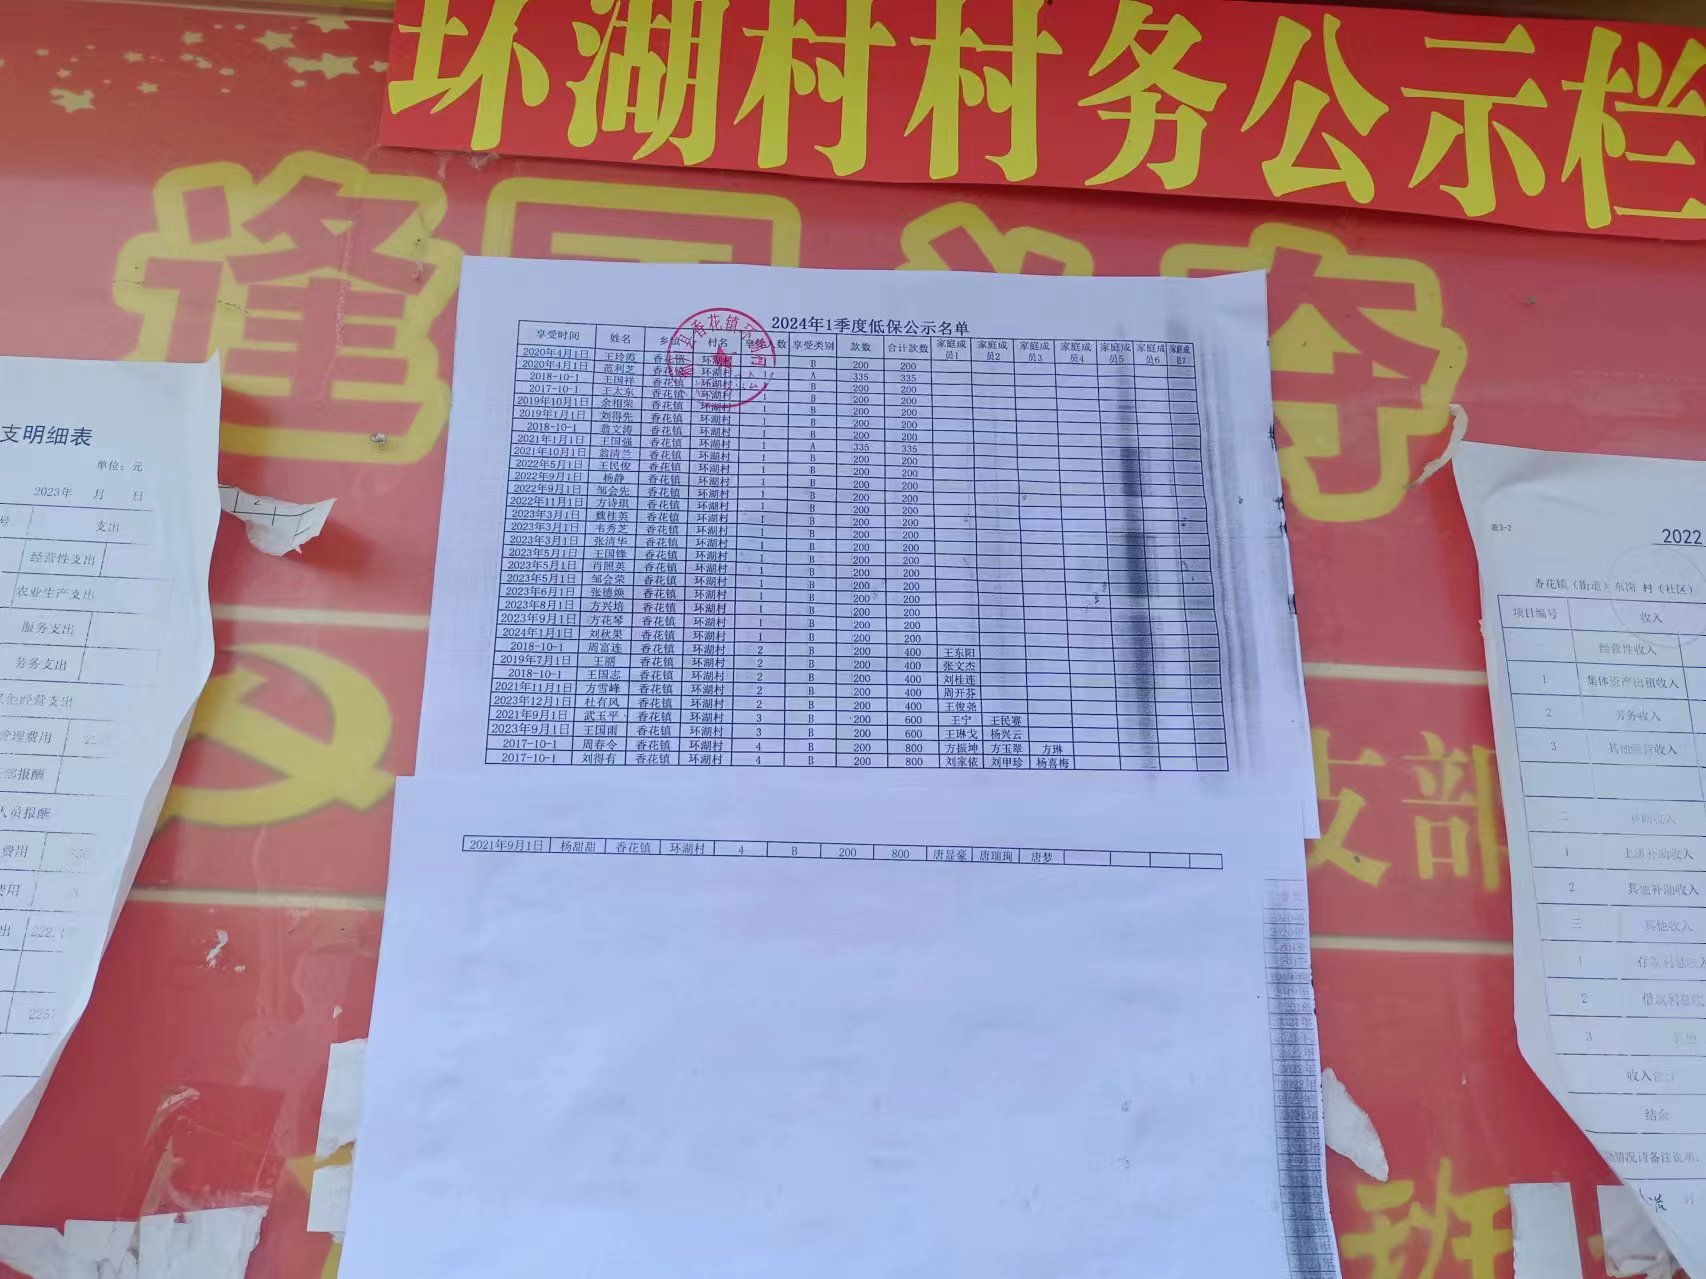 环湖村村务公示栏
2024年1季度低保公示名单
享受时间 姓名 乡镇 村名 享受人数 享受类别 款数 合计款数 家庭成员1 家庭成员2 家庭成员3 家庭成员4 家庭成员5 家庭成员6 家庭成员7
2020年4月1日 王玲霞 香花镇 环湖村 B 200 200
2020年4月1日 范利芝 香花镇 环湖村 A 335 335
2018-10-1 王国祥 香花镇 环湖村 B 200 200
2017-10-1 王太东 香花镇 环湖村 1 B 200 200
2019年10月1日 余相荣 香花镇 环湖村 1 B 200 200
2019年1月1日 刘得先 香花镇 环湖村 1 B 200 200
2018-10-1 翁文涛 香花镇 环湖村 1 B 200 200
2021年1月1日 王国强 香花镇 环湖村 1 A 335 335
2021年10月1日 翁清兰 香花镇 环湖村 1 B 200 200
2022年5月1日 王民俊 香花镇 环湖村 1 B 200 200
2022年9月1日 杨静 香花镇 环湖村 1 B 200 200
2022年9月1日 邹会先 香花镇 环湖村 1 B 200 200
2022年11月1日 方诗琪 香花镇 环湖村 1 B 200 200
2023年3月1日 魏桂英 香花镇 环湖村 1 B 200 200
2023年3月1日 韦秀芝 香花镇 环湖村 1 B 200 200
2023年3月1日 张清华 香花镇 环湖村 1 B 200 200
2023年5月1日 王国锋 香花镇 环湖村 1 B 200 200
2023年5月1日 肖照英 香花镇 环湖村 1 B 200 200
2023年5月1日 邹会荣 香花镇 环湖村 1 B 200 200
2023年6月1日 张德焕 香花镇 环湖村 1 B 200 200
2023年8月1日 方兴培 香花镇 环湖村 1 B 200 200
2023年9月1日 方花琴 香花镇 环湖村 1 B 200 200
2024年1月1日 刘秋果 香花镇 环湖村 1 B 200 200
2018-10-1 周富连 香花镇 环湖村 2 B 200 400 王东阳
2019年7月1日 王丽 香花镇 环湖村 2 B 200 400 张文杰
2018-10-1 王国志 香花镇 环湖村 2 B 200 400 刘桂连
2021年11月1日 方雪峰 香花镇 环湖村 2 B 200 400 周开芬
2023年12月1日 杜有风 香花镇 环湖村 2 B 200 400 王俊尧
2021年9月1日 武玉平 香花镇 环湖村 3 B 200 600 王宁 王民赛
2023年9月1日 王国雨 香花镇 环湖村 3 B 200 600 王琳戈 杨兴云
2017-10-1 周春令 香花镇 环湖村 4 B 200 800 方振坤 方玉翠 方琳
2017-10-1 刘得有 香花镇 环湖村 4 B 200 800 刘家依 刘甲珍 杨喜梅
2021年9月1日 杨甜甜 香花镇 环湖村 4 B 200 800 唐显豪 唐瑞珣 唐梦
支明细表
单位：元
2023年 月 日
号 支出
经营性支出
农业生产支出
服务支出
劳务支出
其他经营支出
管理费用
干部报酬
人员报酬
费用
费用
出 222.
支部
班
表3-2
2022
香花镇（街道）东岗 村（社区）
项目编号 收入
一 经营性收入
1 集体资产出租收入
2 劳务收入
3 其他经营收入
二 补助收入
1 上级补助收入
2 其他补助收入
三 其他收入
1 存款利息收入
2 借款利息收
3 其他
收入合计
结余
情况请备注说明：